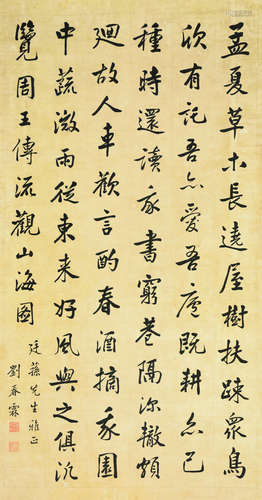 孟夏草木長遶屋樹扶踈眾鳥
欣有託吾亦愛吾廬既耕亦已
種時還讀我書窮巷隔深轍頗
迴故人車歡言酌春酒摘我園
中蔬微雨從東來好風與之俱汎
覽周王傳流觀山海圖
廷蓀先生雅正
劉春霖